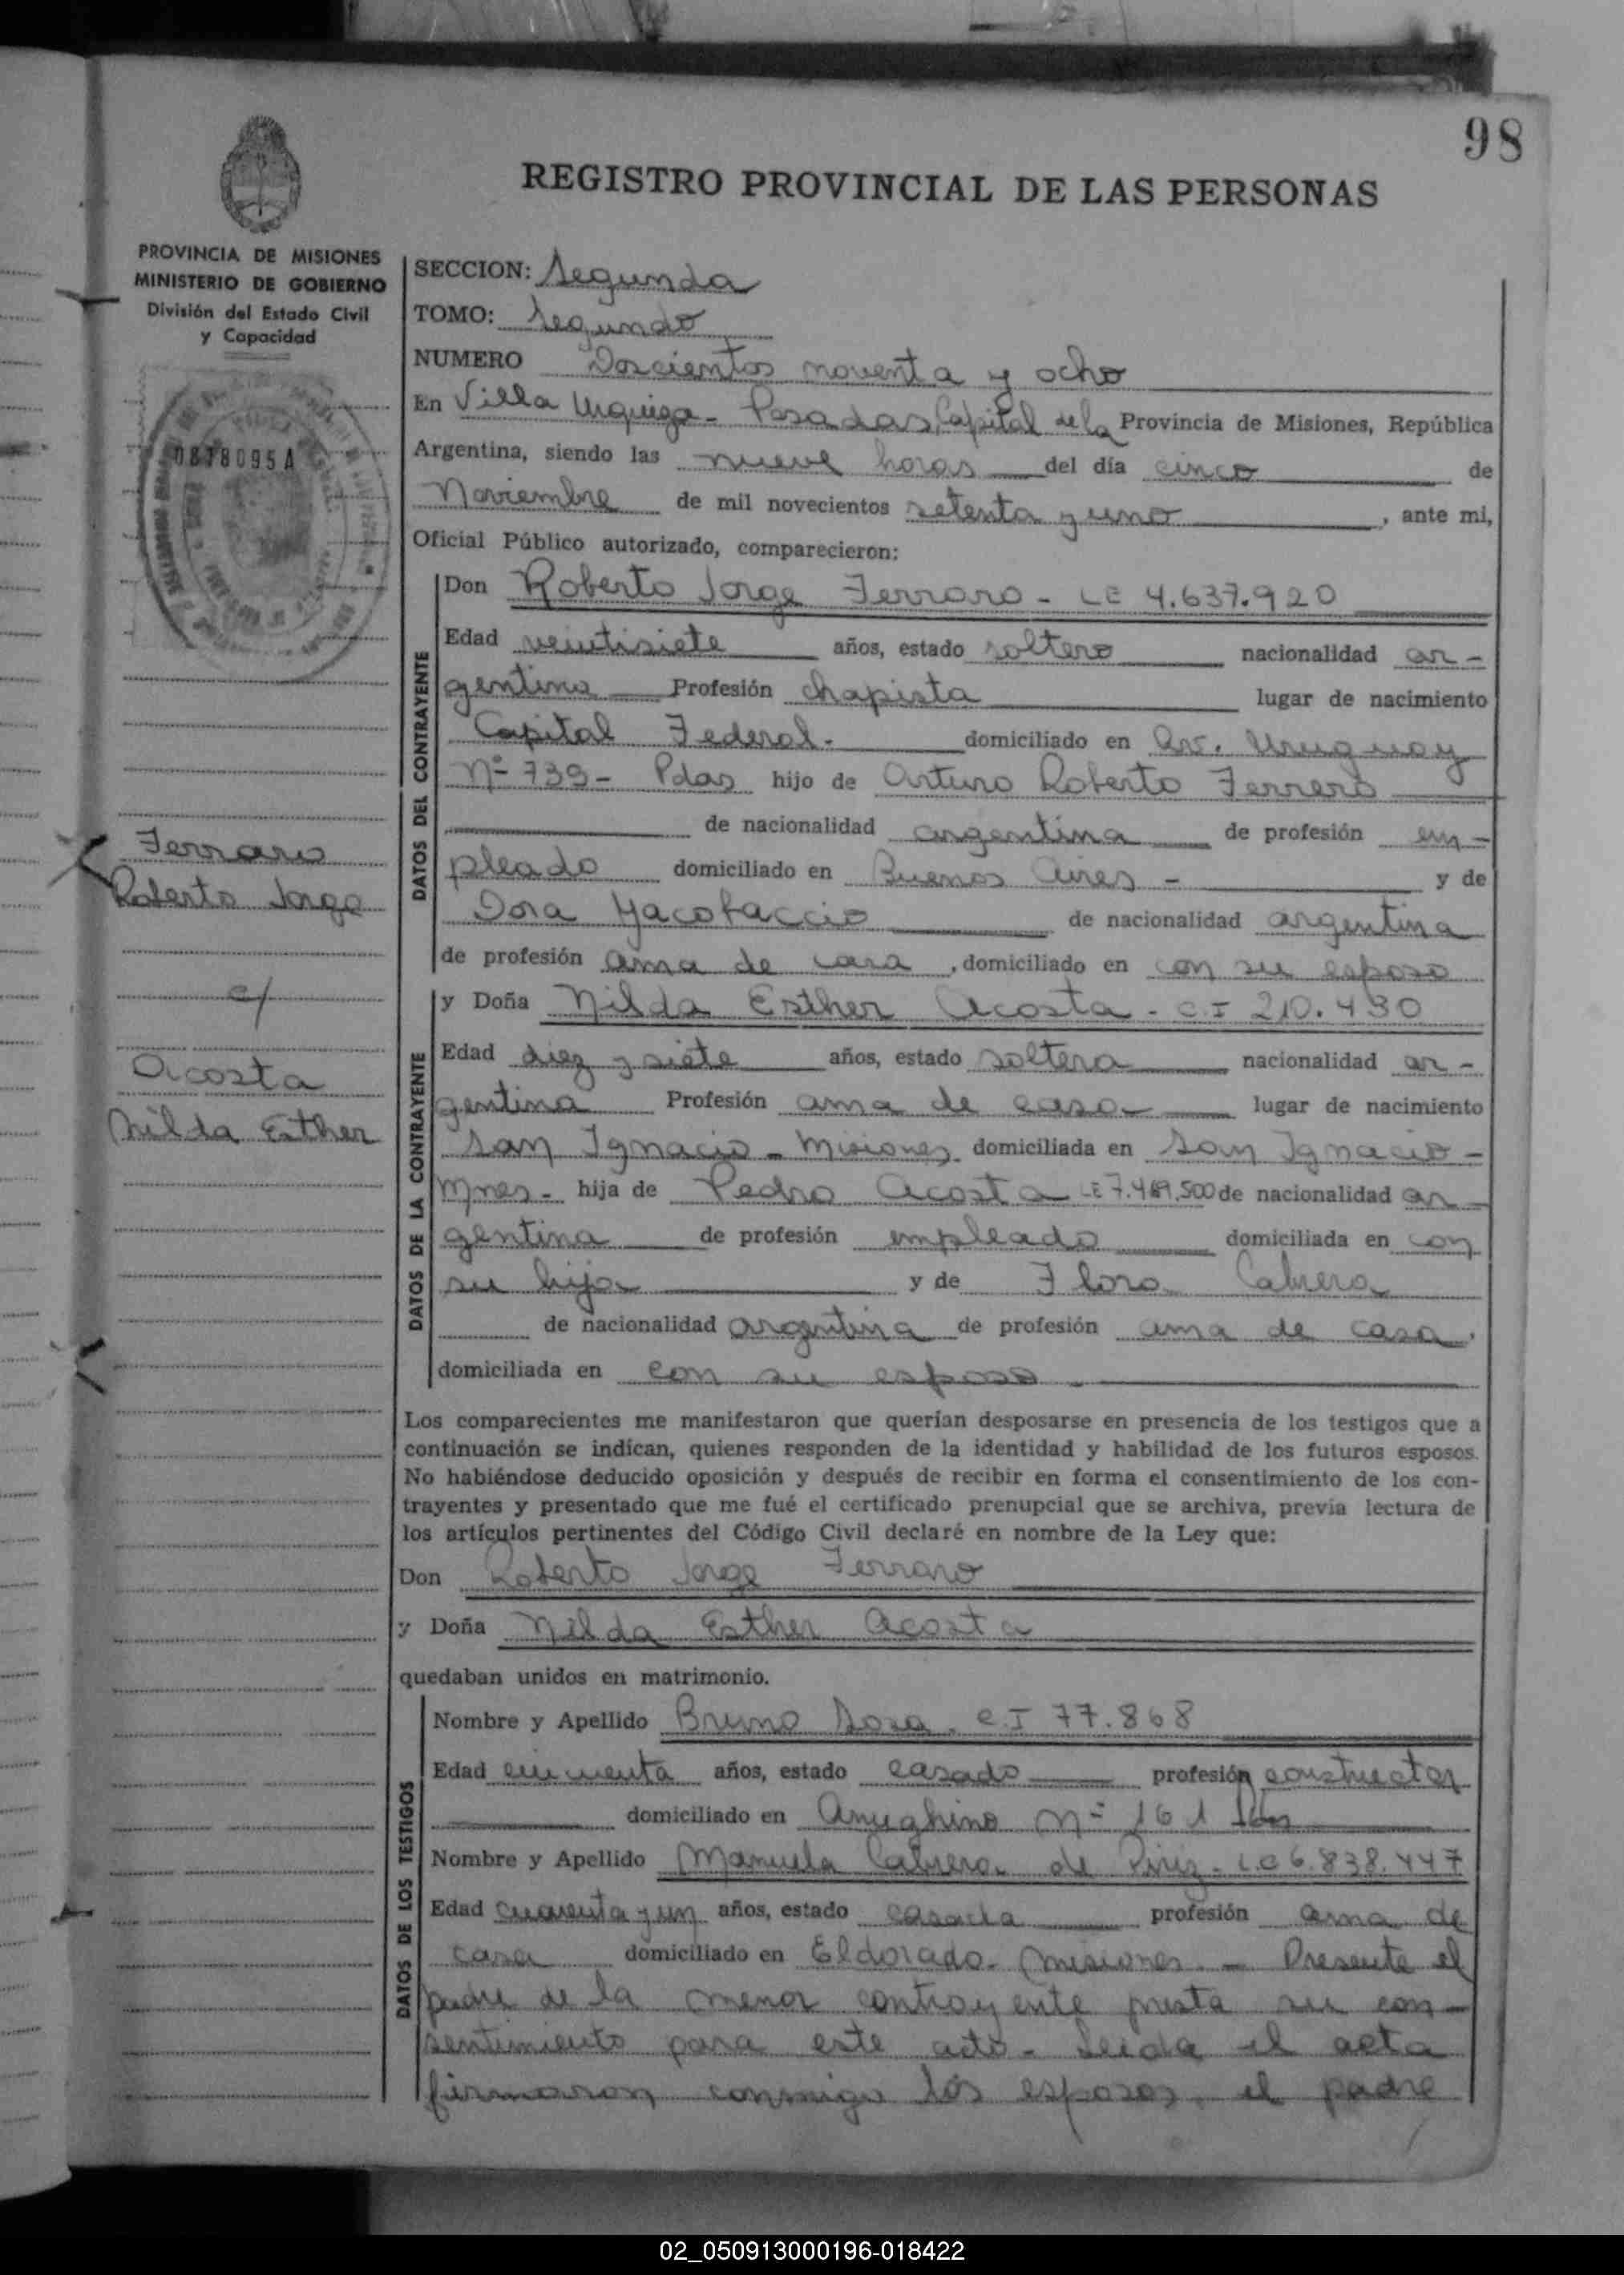 98
REGISTRO PROVINCIAL DE LAS PERSONAS
PROVINCIA DE MISIONES
MINISTERIO DE GOBIERNO
División del Estado Civil
y Capacidad
0878095A
Ferraro
Roberto Jorge
c/
Acosta
Nilda Esther
SECCION: Segunda
TOMO: Segundo
NUMERO Doscientos noventa y ocho
En Villa Urquiza - Posadas, Capital de la Provincia de Misiones, República
Argentina, siendo las nueve horas del día cinco de
Noviembre de mil novecientos setenta y uno, ante mi,
Oficial Público autorizado, comparecieron:
DATOS DEL CONTRAYENTE
Don Roberto Jorge Ferraro - LE 4.637.920
Edad veintisiete años, estado soltero nacionalidad ar-
gentina Profesión chapista lugar de nacimiento
Capital Federal. domiciliado en Av. Uruguay
Nº 739 - Pdas hijo de Arturo Roberto Ferrero
de nacionalidad argentina de profesión em-
pleado domiciliado en Buenos Aires - y de
Dora Yacobaccio de nacionalidad argentina
de profesión ama de casa, domiciliado en con su esposo
DATOS DE LA CONTRAYENTE
y Doña Nilda Esther Acosta - C.I 210.430
Edad diez y siete años, estado soltera nacionalidad ar-
gentina Profesión ama de casa lugar de nacimiento
San Ignacio - Misiones domiciliada en San Ignacio -
Mnes - hija de Pedro Acosta LE 7.469.500 de nacionalidad ar-
gentina de profesión empleado domiciliada en con
su hija y de Flora Cabrera
de nacionalidad argentina de profesión ama de casa,
domiciliada en con su esposo -
Los comparecientes me manifestaron que querían desposarse en presencia de los testigos que a
continuación se indican, quienes responden de la identidad y habilidad de los futuros esposos.
No habiéndose deducido oposición y después de recibir en forma el consentimiento de los con-
trayentes y presentado que me fué el certificado prenupcial que se archiva, previa lectura de
los artículos pertinentes del Código Civil declaré en nombre de la Ley que:
Don Roberto Jorge Ferraro
y Doña Nilda Esther Acosta
quedaban unidos en matrimonio.
DATOS DE LOS TESTIGOS
Nombre y Apellido Bruno Sosa. C.I 77.868
Edad cincuenta años, estado casado profesión constructor
domiciliado en Nº 161 Pdas
Nombre y Apellido Manuela Cabrera de Piriz - L.C 6.838.447
Edad cuarenta y un años, estado casada profesión ama de
casa domiciliado en Eldorado - Misiones. - Presente el
padre de la menor contrayente presta su con-
sentimiento para este acto - Leida el acta
firmaron conmigo los esposos, el padre
02_050913000196-018422